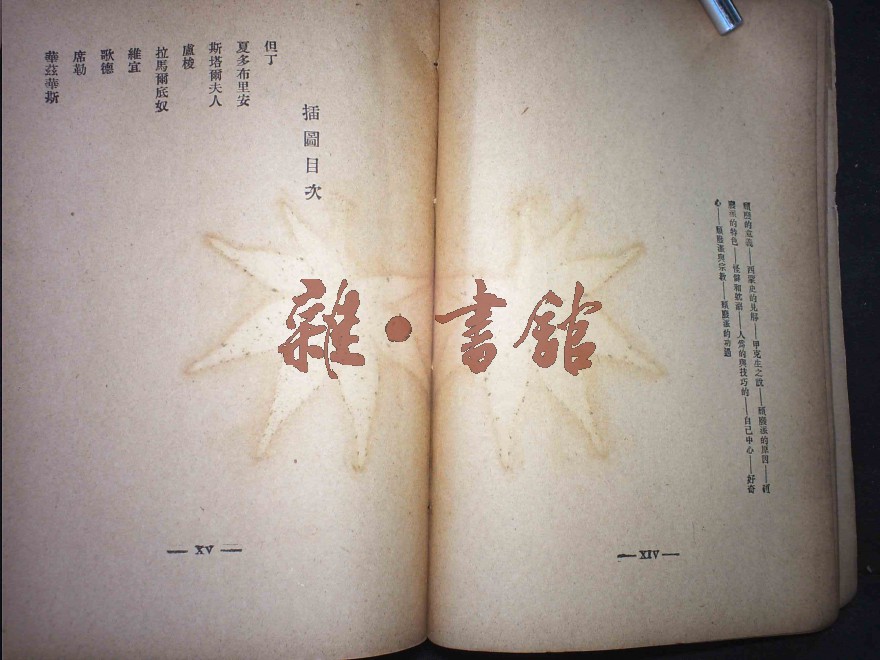 頹廢的意義——西蒙史的見解——甲克生之說——頹廢派的原因——頹
廢派的特色——怪僻和耽溺——人爲的與技巧的——自己中心——好奇
心——頹廢派與宗教——頹廢派的功過
— XIV —
插圖目次
但丁
夏多布里安
斯塔爾夫人
盧梭
拉馬爾底奴
維宜
歌德
席勒
華茲華斯
— XV —
雜·書館